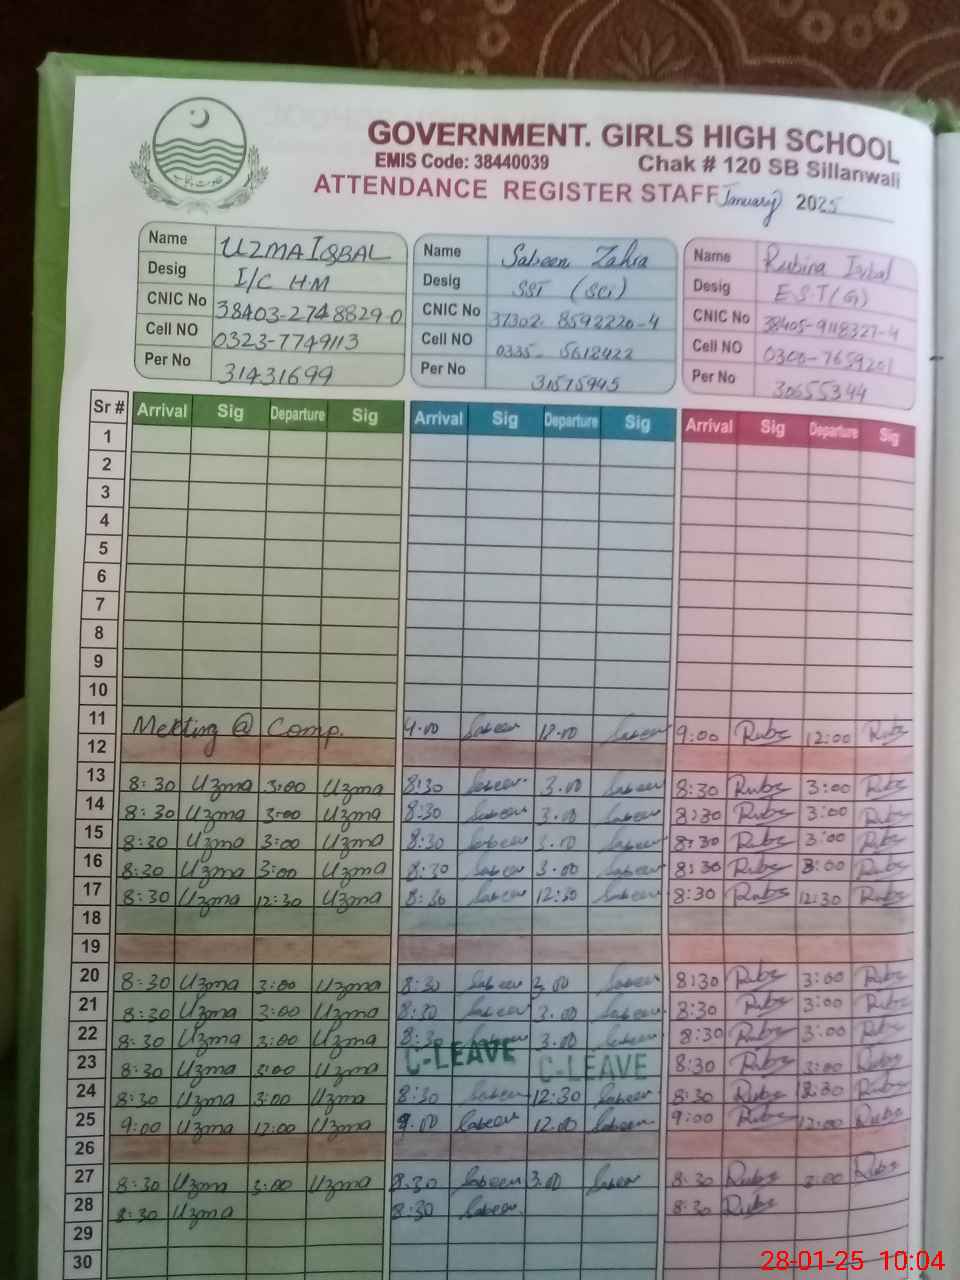 GOVERNMENT. GIRLS HIGH SCHOOL
EMIS Code: 38440039 Chak # 120 SB Sillanwali
ATTENDANCE REGISTER STAFF January 2025
Name UZMA IQBAL Name Sabeen Zahra Name Rubina Iqbal
Desig I/C H.M Desig SST (Sci) Desig E.S.T(G)
CNIC No 38403-2748829-0 CNIC No 37302-8592220-4 CNIC No 38405-9118327-4
Cell NO 0323-7749113 Cell NO 0335-5612422 Cell NO 0306-7659201
Per No 31431699 Per No 31575945 Per No 30655344
Sr # Arrival Sig Departure Sig Arrival Sig Departure Sig Arrival Sig Departure Sig
1
2
3
4
5
6
7
8
9
10
11 Meeting @ Comp. Sabeen Sabeen 9:00 Rubs 12:00 Rubs
12
13 8:30 Uzma 3:00 Uzma 8:30 Sabeen 3.00 Sabeen 8:30 Rubs 3:00 Rubs
14 8:30 Uzma 3:00 Uzma 8:30 Sabeen 3.00 Sabeen 8:30 Rubs 3:00 Rubs
15 8:30 Uzma 3:00 Uzma 8:30 Sabeen 3.00 Sabeen 8:30 Rubs 3:00 Rubs
16 8:30 Uzma 3:00 Uzma 8:30 Sabeen 3.00 Sabeen 8:30 Rubs 3:00 Rubs
17 8:30 Uzma 12:30 Uzma 8:30 Sabeen 12:30 Sabeen 8:30 Rubs 12:30 Rubs
18
19
20 8:30 Uzma 3:00 Uzma 8:30 Sabeen 3.00 Sabeen 8:30 Rubs 3:00 Rubs
21 8:30 Uzma 3:00 Uzma 8:30 Sabeen 3.00 Sabeen 8:30 Rubs 3:00 Rubs
22 8:30 Uzma 3:00 Uzma 8:30 Sabeen 3.00 Sabeen 8:30 Rubs 3:00 Rubs
23 8:30 Uzma 3:00 Uzma C-LEAVE C-LEAVE 8:30 Rubs 3:00 Rubs
24 8:30 Uzma 3:00 Uzma 8:30 Sabeen 12:30 Sabeen 8:30 Rubs Rubs
25 9:00 Uzma 12:00 Uzma 9.00 Sabeen 12.00 Sabeen 9:00 Rubs 12:00 Rubs
26
27 8:30 Uzma 3:00 Uzma 8:30 Sabeen 3.00 Sabeen 8:30 Rubs 3:00 Rubs
28 8:30 Uzma 8:30 Sabeen 8:30 Rubs
29
30
28-01-25 10:04